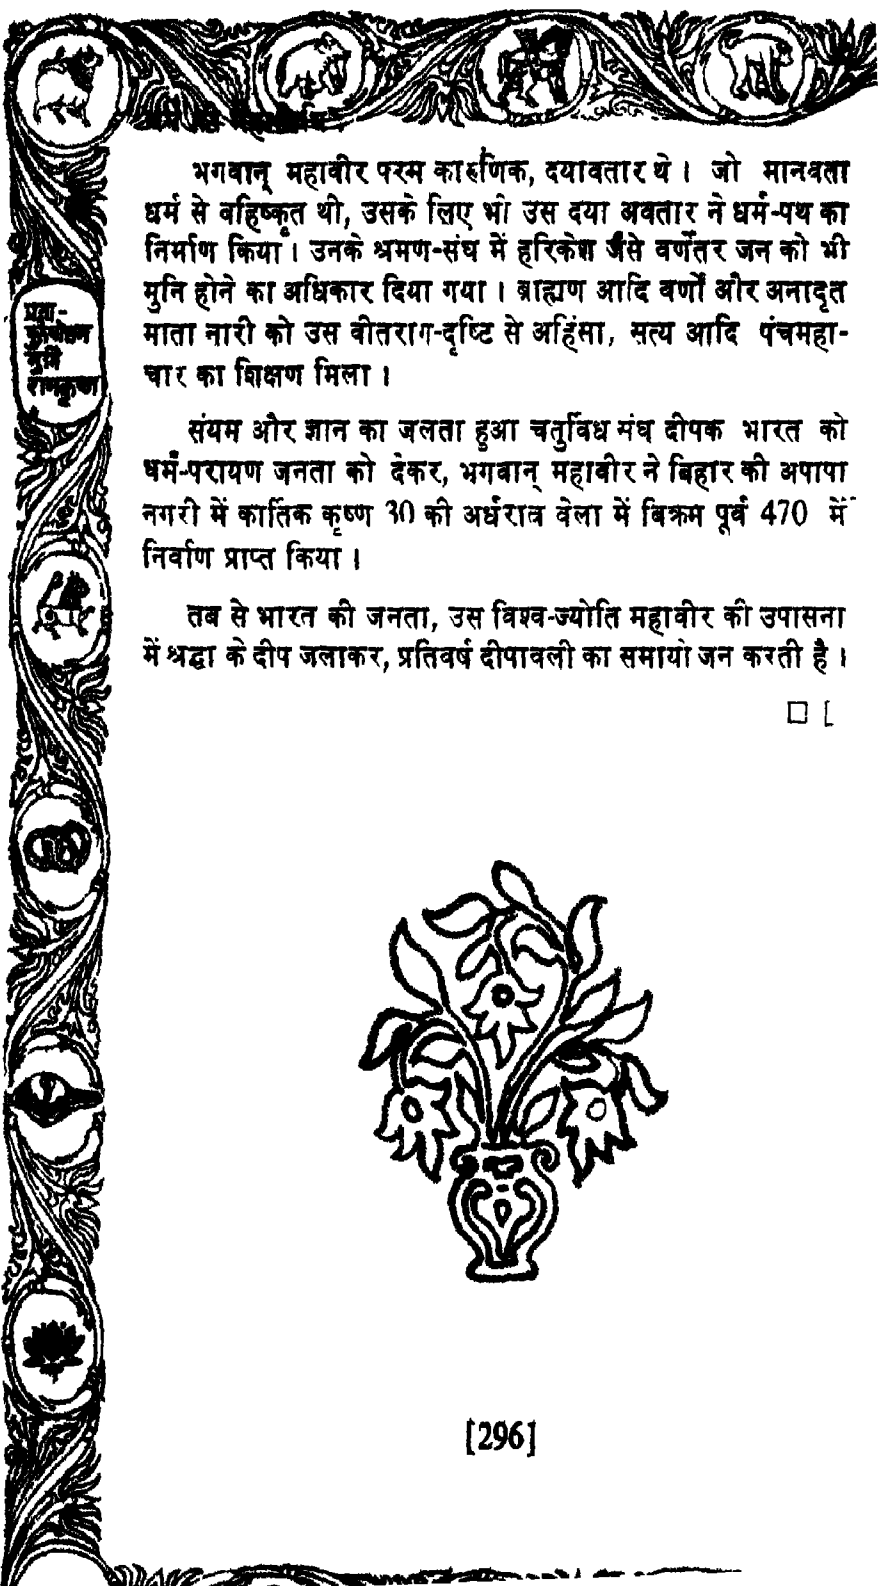 भगवान् महावीर परम कारुणिक, दयावतार थे । जो मानवता
धर्म से वहिष्कृत थी, उसके लिए भी उस दया अवतार ने धर्म-पथ का
निर्माण किया । उनके श्रमण-संघ में हरिकेश जैसे वर्णेतर जन को भी
मुनि होने का अधिकार दिया गया । ब्राह्मण आदि वर्णों और अनादृत
माता नारी को उस वीतराग-दृष्टि से अहिंसा, सत्य आदि पंचमहा-
चार का शिक्षण मिला ।
संयम और ज्ञान का जलता हुआ चतुर्विध संघ दीपक भारत को
धर्म-परायण जनता को देकर, भगवान् महावीर ने बिहार की अपापा
नगरी में कार्तिक कृष्ण 30 की अर्धरात्र वेला में विक्रम पूर्व 470 में
निर्वाण प्राप्त किया ।
तब से भारत की जनता, उस विश्व-ज्योति महावीर की उपासना
में श्रद्धा के दीप जलाकर, प्रतिवर्ष दीपावली का समायोजन करती है ।
मुनि
रामकृष्ण
[296]